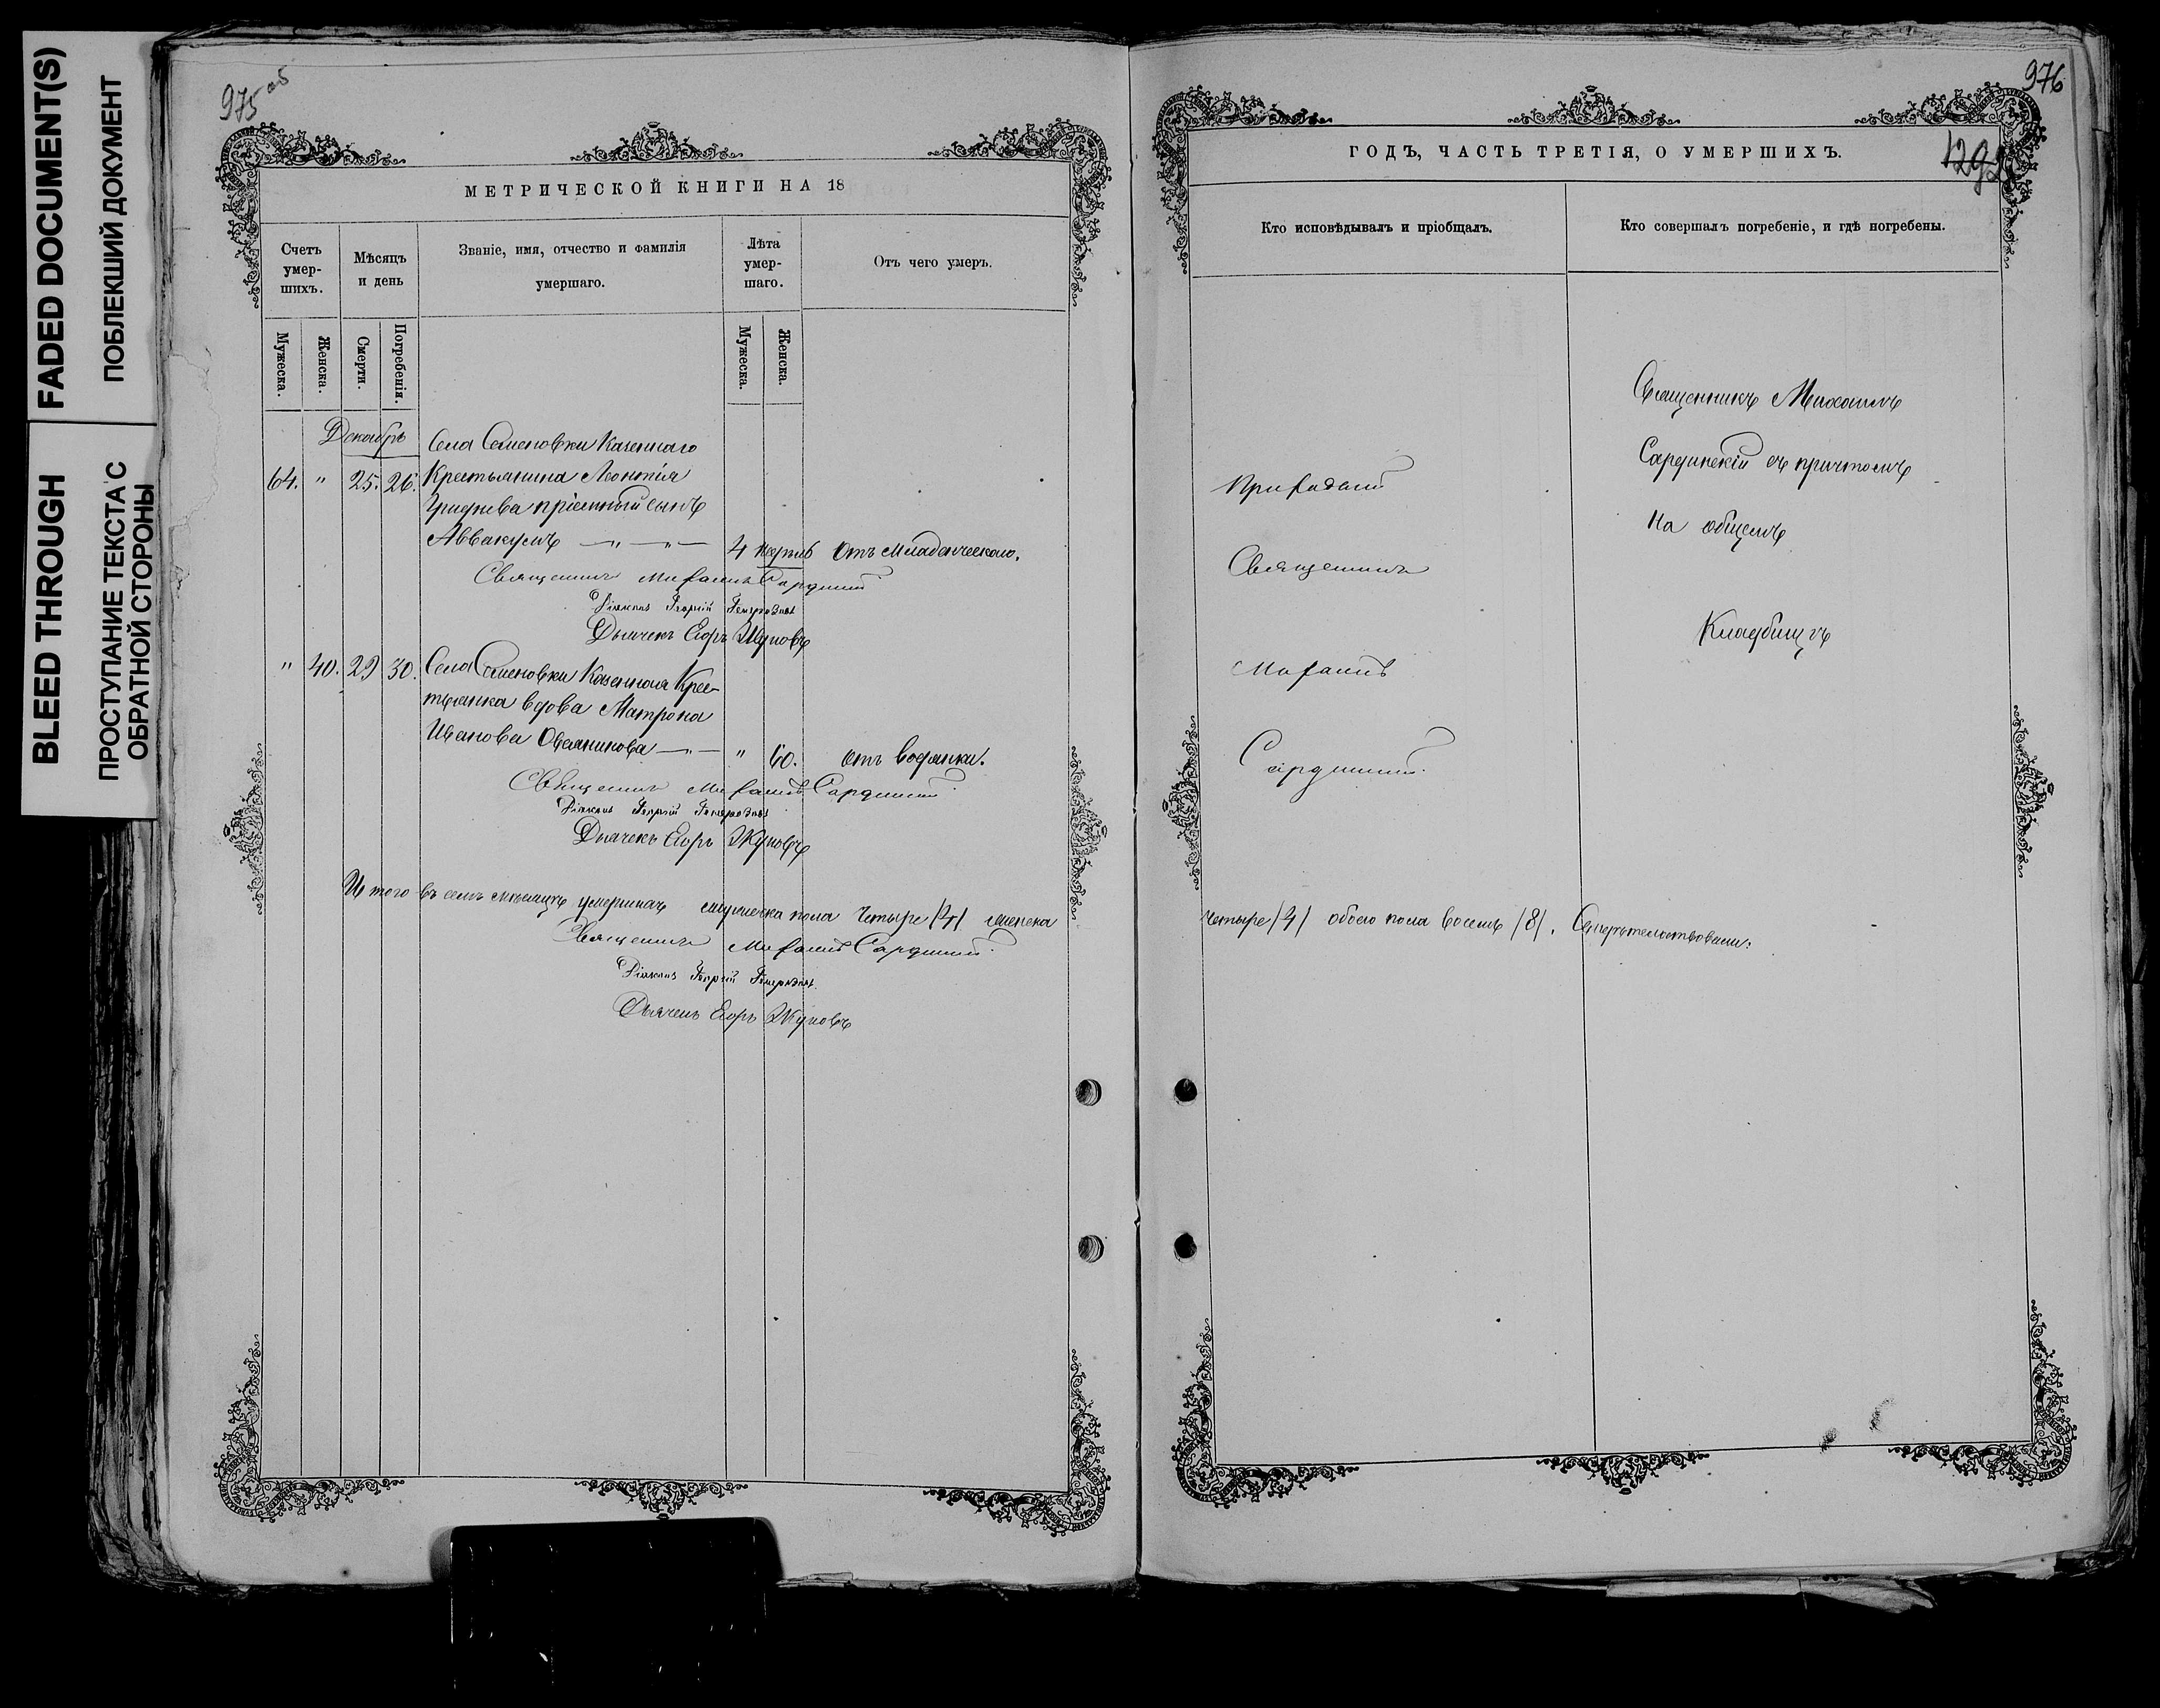 FADED DOCUMENT(S)
ПОБЛЕКШИЙ ДОКУМЕНТ
BLEED THROUGH
ПРОСТУПАНИЕ ТЕКСТА С
ОБРАТНОЙ СТОРОНЫ
975 об
МЕТРИЧЕСКОЙ КНИГИ НА 18
Счетъ умер-шихъ.
Мѣсяцъ и день
Званіе, имя, отчество и фамилія умершаго.
Лѣта умер-шаго.
Отъ чего умеръ.
Мужеска.
Женска.
Смерти.
Погребенія.
Мужеска.
Женска.
Декабрь
Села Семеновки Казеннаго
64. " 25. 26. Крестьянина Леонтія
Гриднева пріемный сынъ
Аввакумъ — " — " — 4 Отъ младенческаго.
Священникъ Михаилъ Сардинскій
Діаконъ Георгій
Дьячекъ Егоръ Жуковъ
" 40. 29 30. Села Семеновки Казенная Крес-
тьянка вдова Матрона
Иванова Овсянникова — " — " 60. отъ водянки.
Священникъ Михаилъ Сардинскій
Діаконъ Георгій
Дьячекъ Егоръ Жуковъ
Итого въ семъ мѣсяцѣ умершихъ мужеска пола четыре /4/ женска
Священникъ Михаилъ Сардинскій
Діаконъ Георгій
Дьячекъ Егоръ Жуковъ
976
1292
ГОДЪ, ЧАСТЬ ТРЕТІЯ, О УМЕРШИХЪ.
Кто исповѣдывалъ и пріобщалъ.
Кто совершалъ погребеніе, и гдѣ погребены.
Священникъ Михаилъ
Сардинскій съ причтомъ
На общемъ
Кладбищѣ
Приходскій
Священникъ
Михаилъ
Сардинскій
четыре /4/ обоего пола восемь /8/. Свидѣтельствовали: